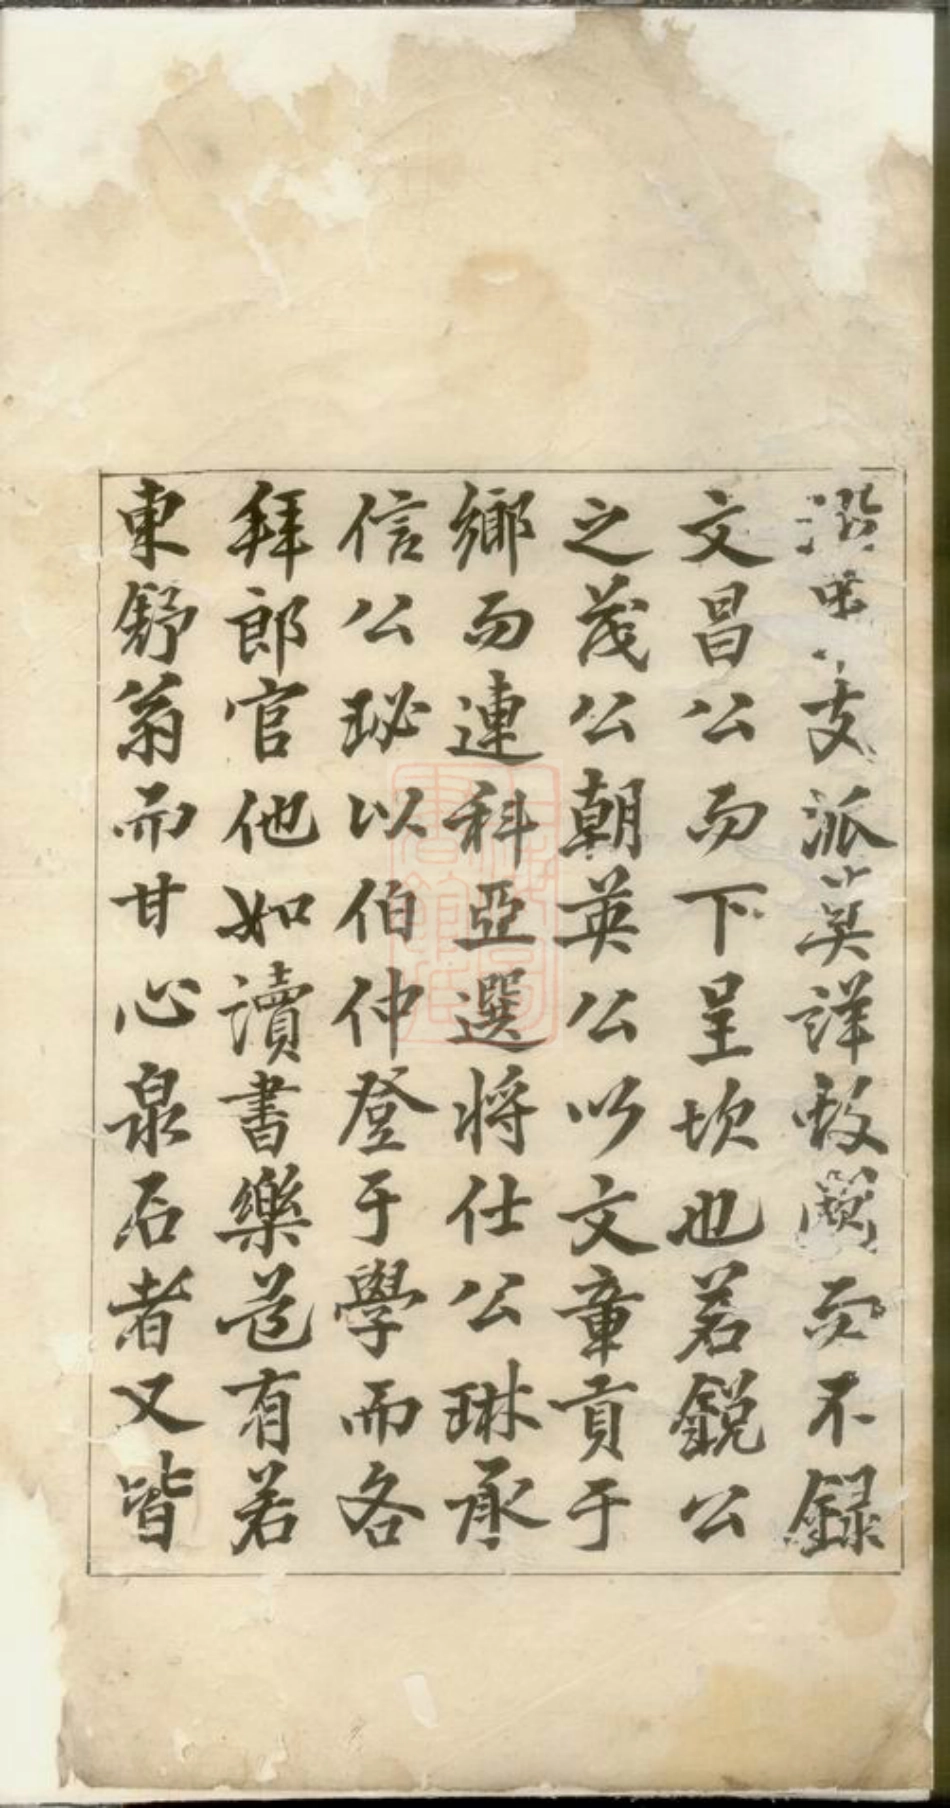 支派莫詳致闕而不錄
文昌公而下呈坎也若銳公
之茂公朝英公以文章貢于
鄉而連科亞選將仕公琳承
信公珌以伯仲登于學而各
拜郎官他如讀書樂道有若
東舒翁而甘心泉石者又皆